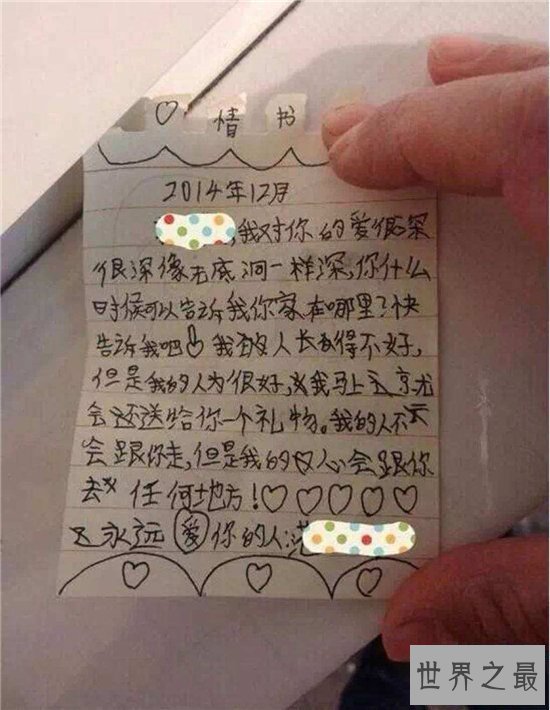 ♡ 情 书
2014年12月
,我对你的爱很深
很深像无底洞一样深,你什么
时候可以告诉我你家在哪里?快
告诉我吧 我的人长得不好,
但是我的人为很好,我马上
会还送给你一个礼物。我的人不
会跟你走,但是我的心会跟你
去 任何地方!♡♡♡♡♡
永远 爱 你的人:
♡ ♡ ♡
世界之最